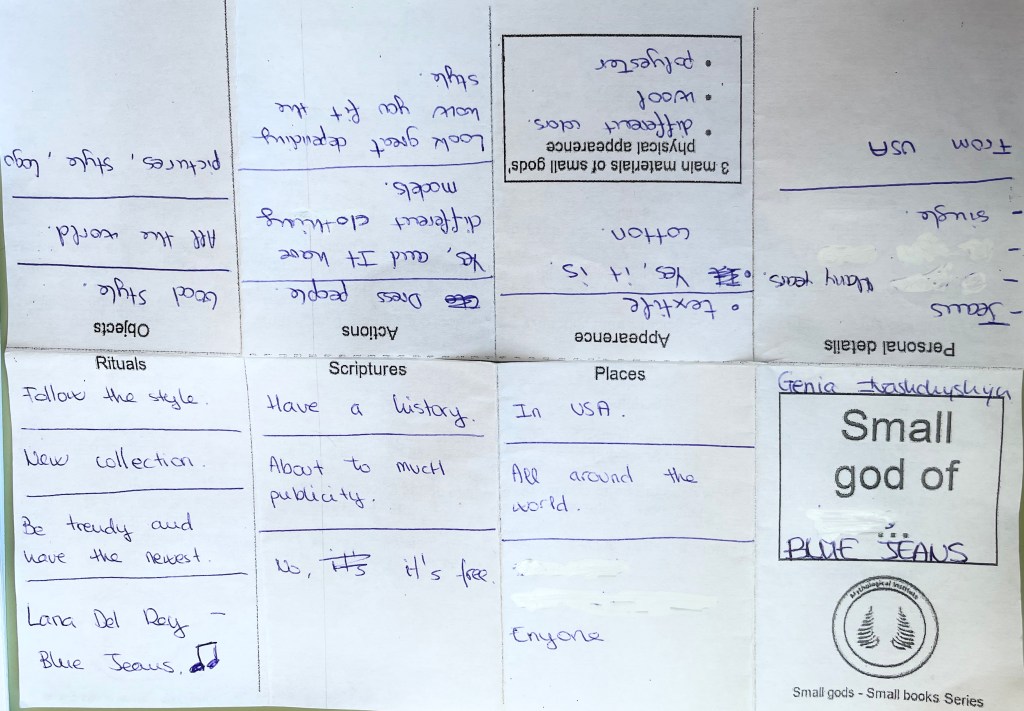 Genia
Small
god of
...
BLUE JEANS
Mythological Institute
Small gods - Small books Series
Personal details
- Jeans
- Many years.
-
- single.
From USA
Appearence
• textile
• Yes, it is.
cotton.
3 main materials of small gods'
physical appearence
• different colors.
• wool
• polyester
Actions
Dress people.
Yes, and It have
different clothing
models.
Look great depending
how you fit the
style.
Objects
Good style.
All the world.
pictures, style, logo
Rituals
Follow the style.
New collection.
Be trendy and
have the newest.
Lana Del Ray –
Blue Jeans.
Scriptures
Have a history.
About to much
publicity.
No, it's it's free.
Places
In USA.
All around the
world.
Enyone